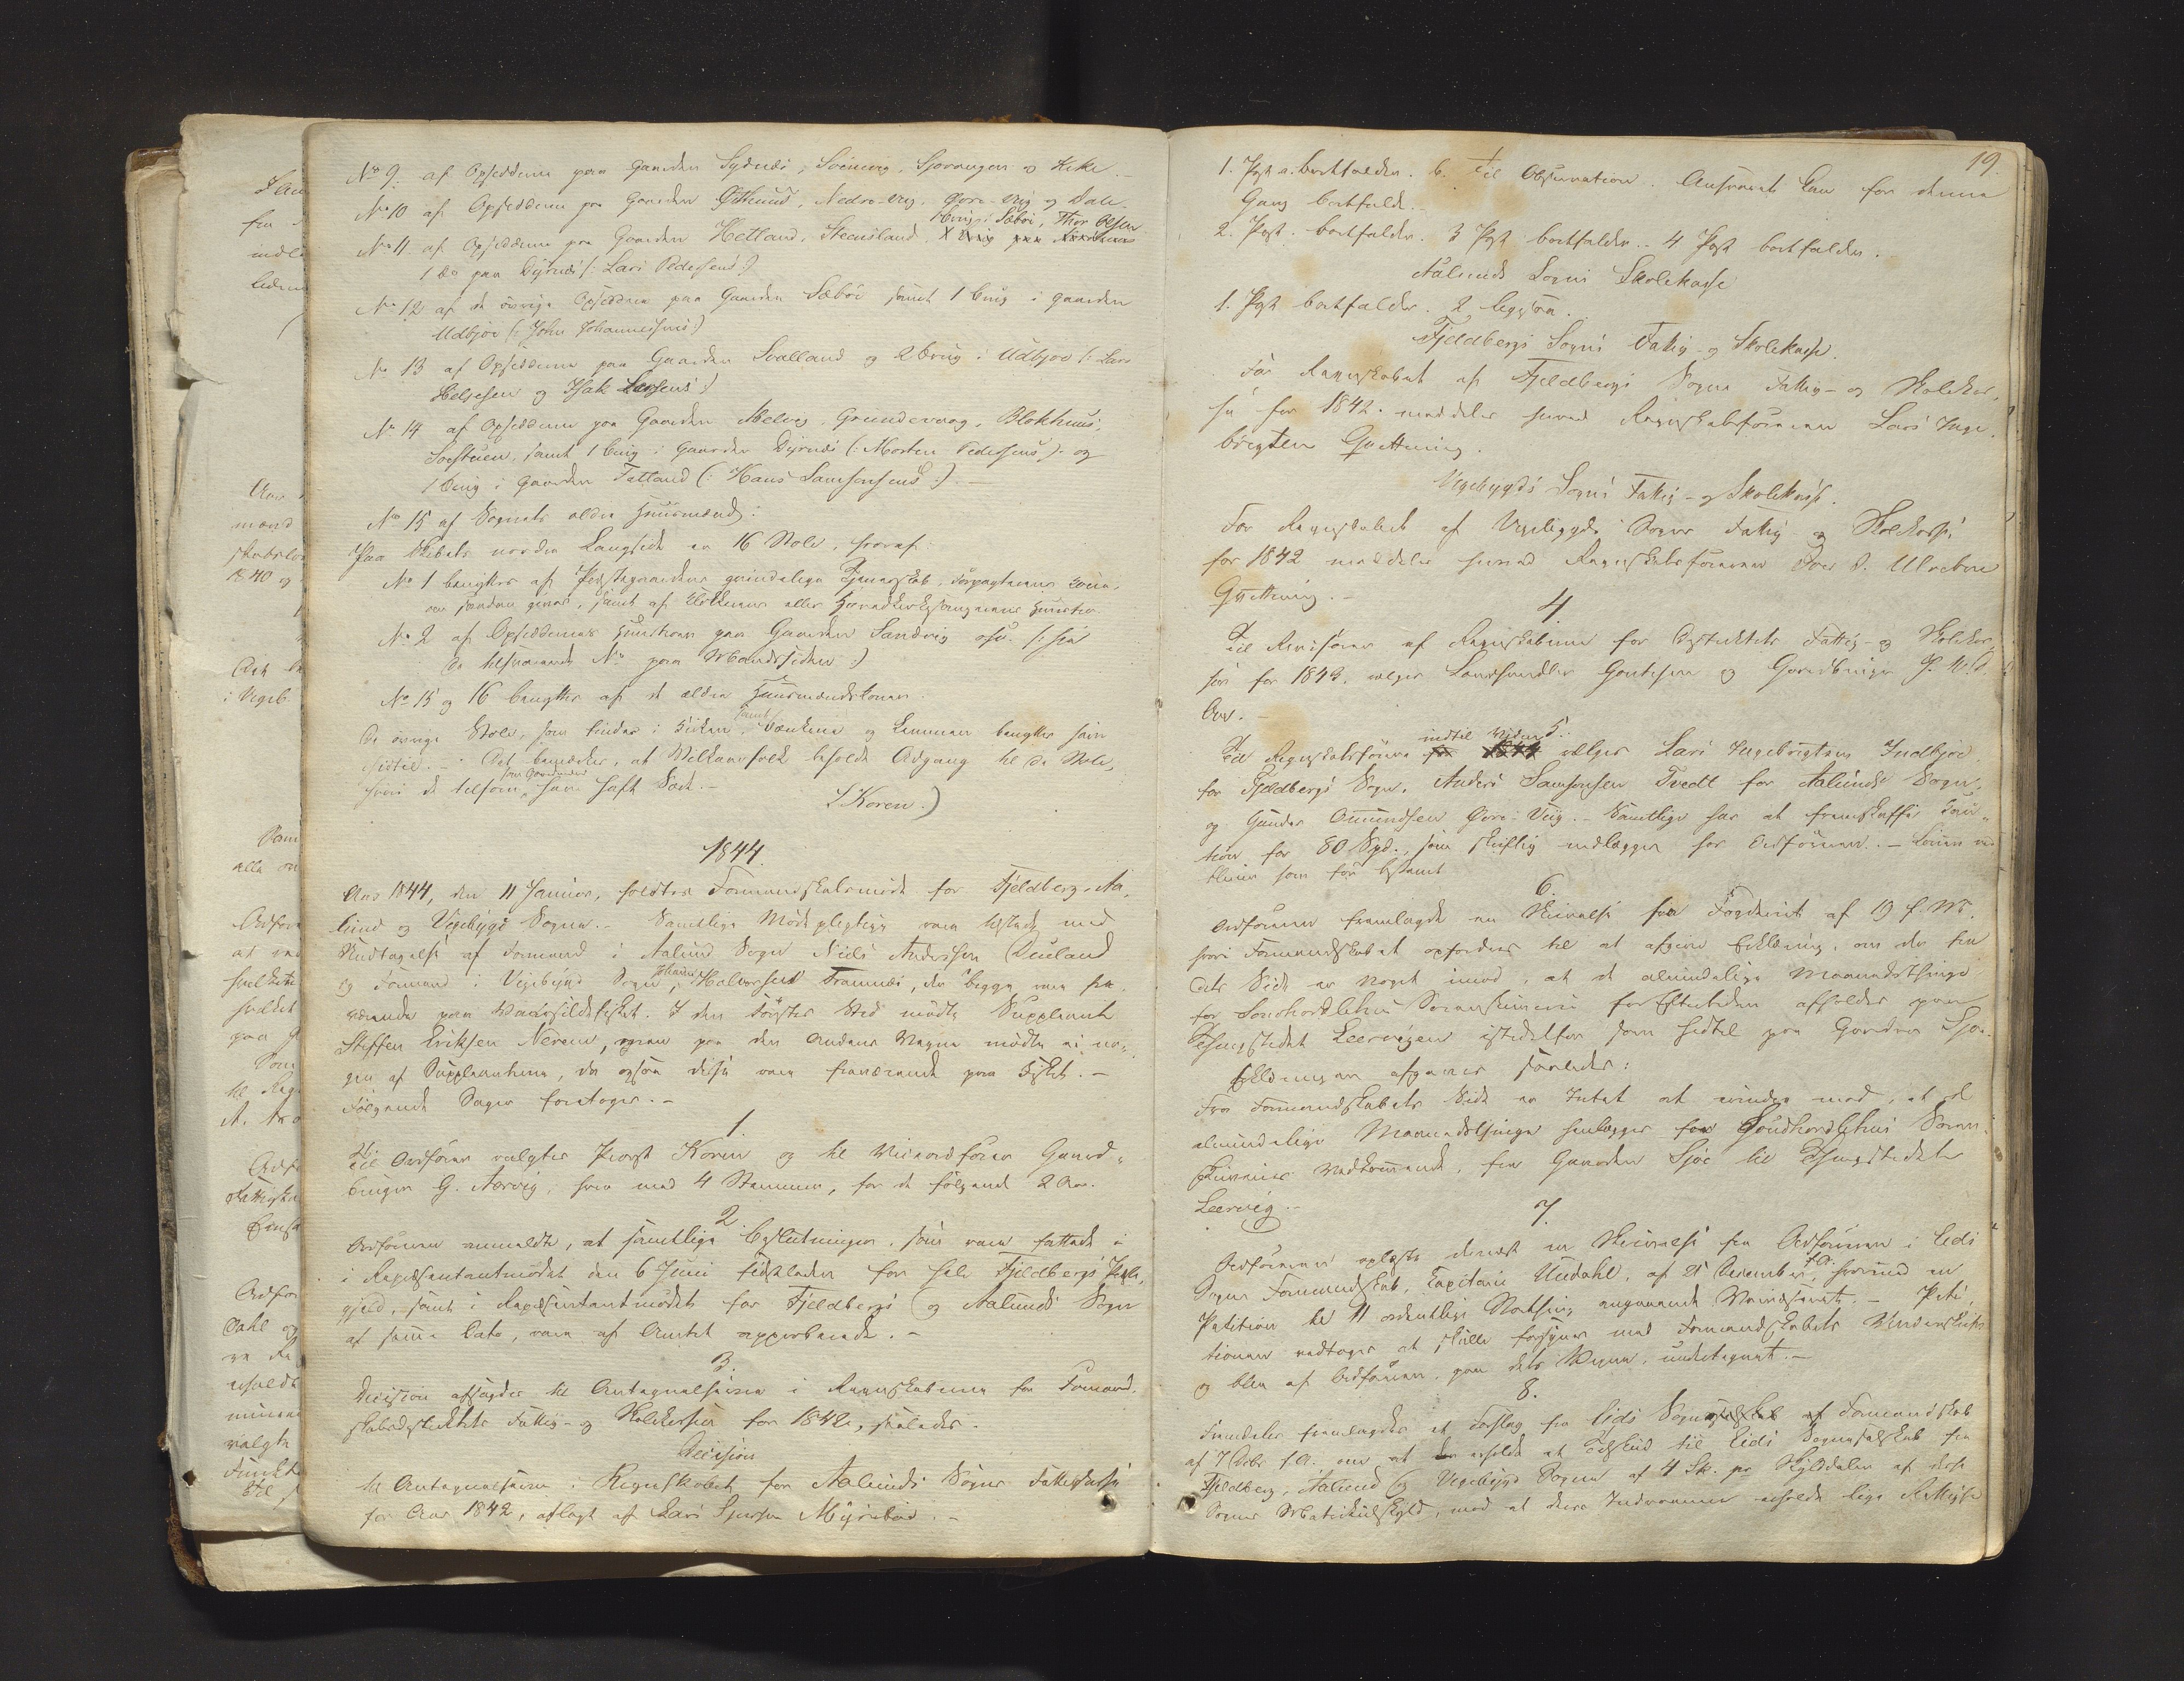 No 9. af Opsidderne paa Gaarden Sydnæs, Svinevig, Sjovangen og Eeke.
No 10 af Opsidderne paa Gaarden Østhuus, Nedre-Viig, Øvre-Viig og Dale.
No 11 af Opsidderne paa Gaarden Hetland, Steensland, 1 Brug i Sæbøe, Thor Olsens
1 do paa Dyrnæs (: Lars Pedersens :)
No 12 af de øvrige Opsiddere paa Gaarden Sæbøe samt 1 Brug i Gaarden
Udbjoe (: John Johannessens :)
No 13 af Opsidderne paa Gaarden Svalland og 2 Brug i Udbjoe (: Lars
Helgesen og Isak Larsens :)
No 14 af Opsidderne paa Gaarden Melvig, Grundevaag, Blokhuus,
samt 1 Brug i Gaarden Dyrnæs (: Morten Pedersens :) og
1 Brug i Gaarden Tatland (: Hans Samsonsens :).
No 15 af Sognets ældre Huusmænd.
Paa Skibets nordre Langside er 16 Stole, hvoraf:
No 1 benyttes af Præstegaardens qvindelige Tjenerskab, Forpagterens Kone,
samt af Klokkerens eller Huustru.
No 2 af Opsiddernes Huustruer paa Gaarden Sandvig osv. (: see
de tilsvarende No paa Mandssiden :)
No 15 og 16 benyttes af de ældre Huusmandskoner.
De øvrige Stole, som findes i Kirken, samt Bænkene og Lemmen benyttes som
hidtil. - Det bemærkes, at Vilkaarsfolk beholde Adgang til de Stole,
hvori de tilforn som Gaardmænd have havt Sæde. -
S Koren.)
1844.
Aar 1844, den 11 Januar, holdtes Formandskabsmøde for Fjeldberg, Aa-
lund og Vigebygds Sogne. - Samtlige Mødepligtige vare tilstede med
Undtagelse af Formand i Aalund Sogn Niels Andersen Duuland
og Formand i Vigebygd Sogn, Johannes Halvorsen Tramnæs, der begge vare fra-
værende paa Vaarsildefisket. I den førstes Sted mødte Suppleant
Steffen Eriksen Nerem, men paa den Andens Vegne mødte ei no-
gen af Suppleanterne, da ogsaa disse vare fraværende paa Fisket. -
Følgende Sager foretoges. -
1.
Til Ordfører valgtes Provst Koren og til Viceordfører Gaard-
bruger G. Aarvig, hver med 4 Stemmer, for de følgende 2 Aar.
2.
Ordføreren anmeldte, at samtlige Beslutninger, som vare fattede i
i Repræsentantmødet den 6 Juni sidstleden for hele Fjeldbergs Præste-
gjeld, samt i Repræsentantmødet for Fjeldbergs og Aalunds Sogn
af samme Dato, vare af Amtet approberede. -
3.
Decision afsagdes til Antegnelserne i Regnskaberne for Formand-
skabsdistriktets Fattig- og Skolekasser for 1842, saaledes.
Decision
til Antegnelserne i Regnskabet for Aalunds Sogns Fattigkasse
for Aar 1842, aflagt af Lars Sjursen Myrebøe. -
19.
1. Post a. bortfalder. b. Til Observation. Ansvaret kan for denne
Gang bortfalde. -
2. Post. bortfalder. 3 Post bortfalder. - 4 Post bortfalder. -
Aalunds Sogns Skolekasse
1. Post bortfalder. 2 ligesaa.
Fjeldbergs Sogns Fattig- og Skolekasse.
For Regnskabet af Fjeldbergs Sogns Fattig- og Skolekas-
se for 1842. meddeles herved Regnskabsføreren Lars Inge-
brigtsen Qvittering.
Vigebygds Sogns Fattig- og Skolekasse.
For Regnskabet af Vigebygds Sogns Fattig- og Skolekasse
for 1842 meddeles herved Regnskabsføreren Iver S. Ulvebne
Qvittering. -
4.
Til Revisorer af Regnskaberne for Distriktets Fattig- og Skolekas-
ser for 1843. valgtes Landhandler Gontesen og Gaardbruger
5.
Til Regnskabsførere indtil Videre valgtes Lars Ingebrigtsen Indbjoe
for Fjeldbergs Sogn, Anders Samsonsen Tvedt for Aalunds Sogn,
og Gunder Amundsen Øvre-Viig. - Samtlige har at fremskaffe Cau-
tion for 80 Spd., som skriftlig nedlægges hos Ordføreren. - Lønnen ved
bliver som før bestemt
6.
Ordføreren fremlagde en Skrivelse fra Fogderiet af 19 f. M.,
hvori Formandskabet opfordres til at afgive Erklæring, om der fra
dets Side er noget imod, at de almindelige Maanedsthinge
for Søndhordlehns Sorenskriverie for Eftertiden afholdes paa
Thingstedet Leervigen istedetfor som hidtil paa Gaarden Sjoe.
Erklæringen afgaves saaledes:
Fra Formandskabets Side er Intet at erindre mod, at de
almindelige Maanedsthinge henlægges for Søndhordlehns Soren-
skriverie vedkommende, fra Gaarden Sjoe til Thingstedet
Leervig. -
7.
Ordføreren oplæste dernæst en Skrivelse fra Ordføreren i Eids
Sogns Formandskab, Capitain Undahl, af 21 December f. A., hvorved en
Petition til 11 ordentlige Storthing angaaende Værnepligt. - Peti-
tionen vedtoges at skulle forsynes med Formandskabets Underskrift
og blev af Ordføreren, paa dets Vegne, undertegnet. -
8.
Fremdeles fremlagdes et Forslag fra Eids Sogneselskab af Formandskab
af 7 Decbr f. A. om at erholde et Tilskud til Eids Sogneselskab fra
Fjeldberg, Aalund og Vigebygd Sogne af 4 Sk. pr Skylddaler af disse
Sognes Matrikulskyld, mod at deres Indvaanere erholde lige Rettighed